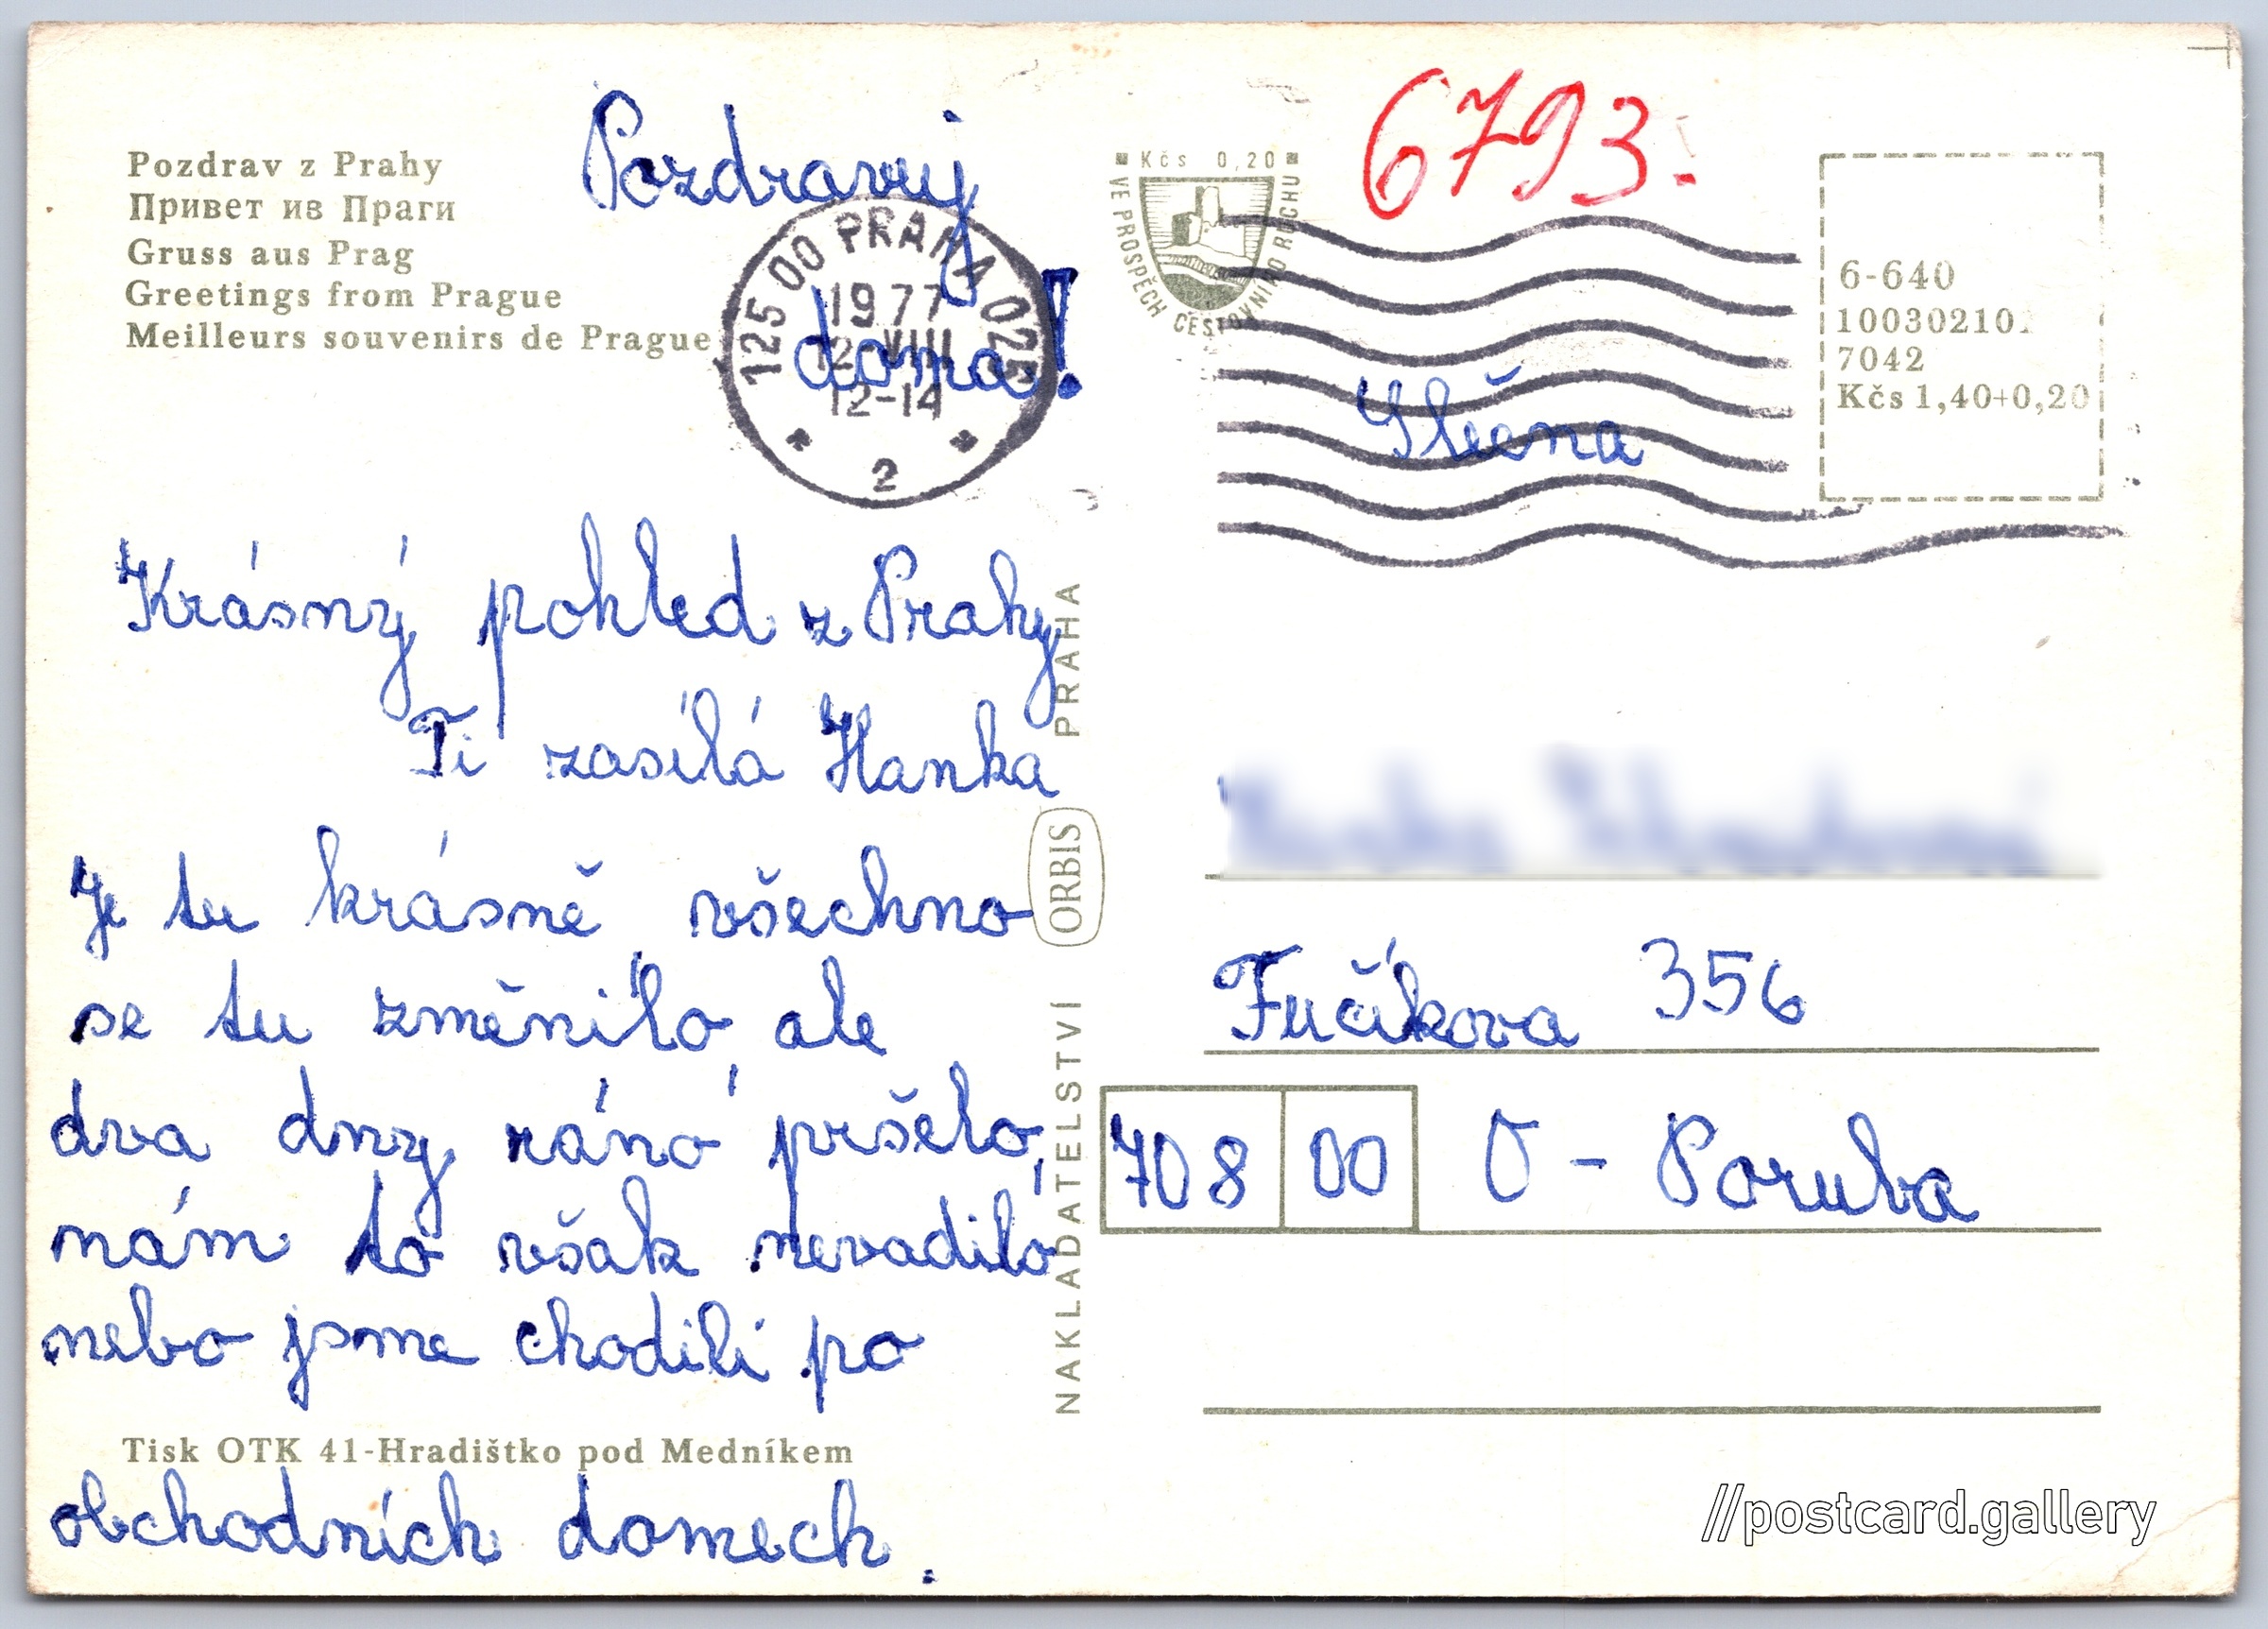 Pozdrav z Prahy
Привет из Праги
Gruss aus Prag
Greetings from Prague
Meilleurs souvenirs de Prague
Pozdravuj
doma!
125 00 PRAHA 025
1977
VIII
12-14
2
Krásný pohled z Prahy
Ti zasílá Hanka
Je tu krásně všechno
se tu změnilo, ale
dva dny ráno pršelo,
nám to však nevadilo
nebo jsme chodili po
Tisk OTK 41-Hradištko pod Medníkem
obchodních domech.
NAKLADATELSTVÍ ORBIS PRAHA
Kčs 0,20
VE PROSPĚCH CESTOVNÍHO RUCHU
6793.
6-640
10030210
7042
Kčs 1,40+0,20
Slečna
Fučíkova 356
708 00 O - Poruba
//postcard.gallery